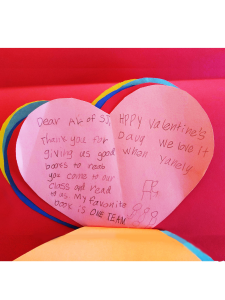 Dear Ak of S, HPPy Valentine's
Thank you for Day We love it
giving us good when
books to read
you come to our
class and read
to us. My favorite
book is ONE TEAM